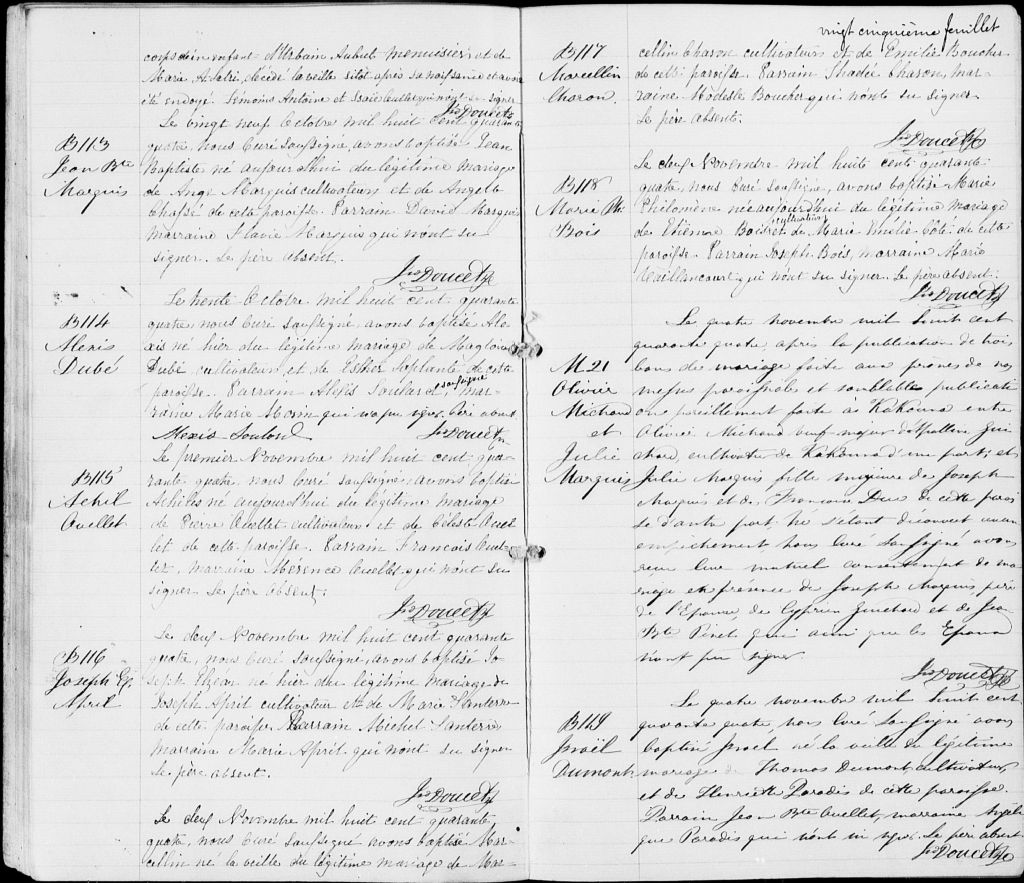 corps d'un enfant d'Urbain Aubut menuisier, et de
Marie décédé la veille sitôt après sa naissance et avons
été endoyé. Témoins Antoine et Isaie qui n'ont su signer
Jos Doucet ptre
B113
Jean Bte
Marquis
Le vingt neuf Octobre mil huit cent quarante
quatre, nous Curé soussigné, avons baptisé Jean
Baptiste né aujourd'hui du légitime mariage
de Ange Marquis cultivateur et de Angele
Chassé de cette paroisse. Parrain David Marquis
marraine Flavie Marquis qui n'ont su
signer. Le père absent.
Jos Doucet ptre
B114
Alexis
Dubé
Le trente Octobre mil huit cent quarante
quatre, nous Curé soussigné, avons baptisé Ale-
xis né hier du légitime mariage de Magloire
Dubé cultivateur et de Esther de cette
paroisse. Parrain Alexis Soulard, soussigné mar-
raine Marie Morin qui n'a pu signer. Père absent
Alexis Soulard
Jos Doucet ptre
B115
Achil
Ouellet
Le premier Novembre mil huit cent qua-
rante quatre, nous Curé soussigné, avons baptisé
Achiles né aujourd'hui du légitime mariage
de Pierre Ouellet cultivateur et de Céleste Ouel-
let de cette paroisse. Parrain Francois Ouel-
let, marraine Merence Ouellet qui n'ont su
signer. Le père absent.
Jos Doucet ptre
B116
Joseph El.
April
Le deux Novembre mil huit cent quarante
quatre, nous Curé soussigné, avons baptisé Jo-
seph Elzear né hier du légitime mariage de
Joseph April cultivateur et de Marie Santerre
de cette paroisse. Parrain Michel Santerre
marraine Marie April qui n'ont su signer
Le père absent.
Jos Doucet ptre
Le deux Novembre mil huit cent quarante
quatre, nous Curé soussigné avons baptisé Mar-
cellin né la veille du légitime mariage de Mar-
vingt cinquième feuillet
B117
Marcellin
Charon.
cellin Charon cultivateur et de Emilie Boucher
de cette paroisse. Parrain Thadée Charon, mar-
raine Modeste Boucher qui n'ont su signer.
Le père absent.
Jos Doucet ptre
B118
Marie Ph.
Bois
Le deux Novembre mil huit cent quarante
quatre, nous Curé soussigné, avons baptisé Marie
Philomène née aujourd'hui du légitime mariage
de Etienne Bois cultivateur et de Marie Côté de cette
paroisse Parrain Joseph Bois, marraine Marie
Vaillencourt qui n'ont su signer. Le père absent.
Jos Doucet ptre
M21
Olivier
Michaud
et
Julie
Marquis
Le quatre novembre mil huit cent
quarante quatre, après la publication de trois
bans de mariage faite aux prones de nos
messes paroissiales et semblable publicati-
on pareillement faite à Kakouna entre
Olivier Michaud veuf majeur
cultivateur de Kakouna d'une part; et
Julie Marquis fille majeure de Joseph
Marquis et de Francoise de cette parois-
se d'autre part. Ne s'étant découvert aucun
empêchement, nous Curé soussigné avons
recu leur mutuel consentement de ma-
riage en présence de Joseph Marquis père
de l'Epouse, de Cyprien et de Jean
Bte Pinet qui ainsi que les Epoux
n'ont pu signer.
Jos Doucet ptre
B119
Jnoël
Dumont
Le quatre novembre mil huit cent
quarante quatre, nous Curé soussigné avons
baptisé Jnoël né la veille du légitime
mariage de Thomas Dumont, cultivateur,
et de Henriette Paradis de cette paroisse.
Parrain Jean Bte Ouellet, marraine Angeli-
que Paradis qui n'ont su signer. Le père absent
Jos Doucet ptre